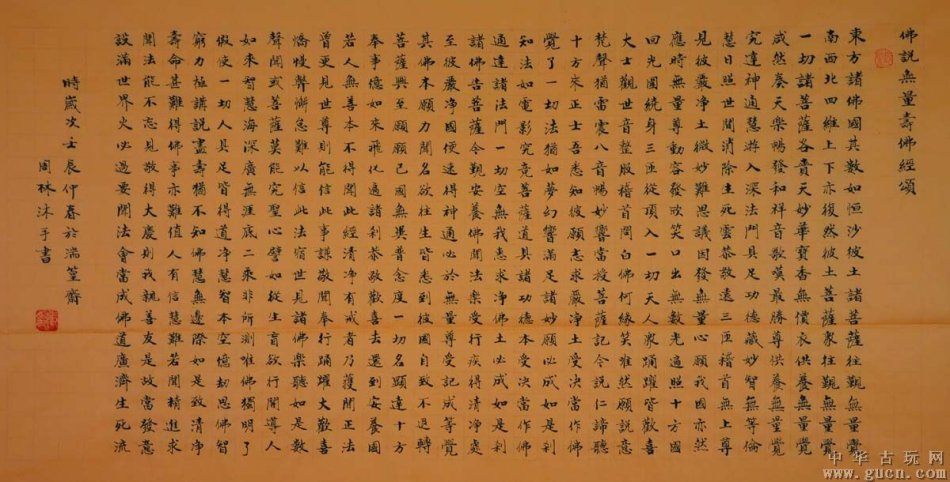 佛說無量壽佛經頌
東方諸佛國其數如恒沙彼土諸菩薩往覲無量覺
南西北四維上下亦復然彼土菩薩眾往覲無量覺
一切諸菩薩各賫天妙華寶香無價衣供養無量覺
咸然奏天樂暢發和雅音歌歎最勝尊供養無量覺
究達神通慧遊入深法門具足功德藏妙智無等倫
慧日照世間消除生死雲恭敬遶三匝稽首無上尊
見彼嚴淨土微妙難思議因發無量心願我國亦然
應時無量尊動容發欣笑口出無數光遍照十方國
回光圍繞身三匝從頂入一切天人眾踊躍皆歡喜
大士觀世音整服稽首問白佛何緣笑唯然願說意
梵聲猶雷震八音暢妙響當授菩薩記今說仁諦聽
十方來正士吾悉知彼願志求嚴淨土受決當作佛
覺了一切法猶如夢幻響滿足諸妙願必成如是剎
知法如電影究竟菩薩道具諸功德本受決當作佛
通達諸法門一切空無我專求淨佛土必成如是剎
諸佛告菩薩令覲安養佛聞法樂受行疾得清淨處
至彼嚴淨國便速得神通必於無量尊受記成等覺
其佛本願力聞名欲往生皆悉到彼國自致不退轉
菩薩興至願願己國無異普念度一切名顯達十方
奉事億如來飛化遍諸剎恭敬歡喜去還到安養國
若人無善本不得聞此經清淨有戒者乃獲聞正法
曾更見世尊則能信此事謙敬聞奉行踊躍大歡喜
憍慢弊懈怠難以信此法宿世見諸佛樂聽如是教
聲聞或菩薩莫能究聖心譬如從生盲欲行開導人
如來智慧海深廣無涯底二乘非所測唯佛獨明了
假使一切人具足皆得道淨慧智本空億劫思佛智
窮力極講說盡壽猶不知佛慧無邊際如是致清淨
壽命甚難得佛事亦難值人有信慧難若聞精進求
聞法能不忘見敬得大慶則我親善友是故當發意
設滿世界火必過要聞法會當成佛道廣濟生死流
時歲次壬辰仲春於湍堇齋
周林沐手書
中华古玩网
www.gucn.com